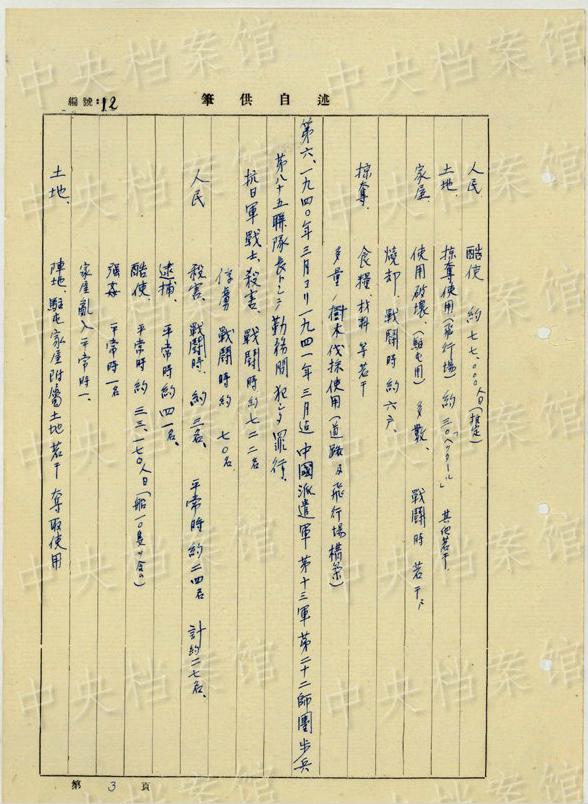 編號:12
筆供自述
人民. 酷使 約七七.〇〇〇人日(推定)
土地. 掠奪使用(飛行場)約三〇「ヘクタール」 其他若干.
家屋. 使用破壊.(駐屯用)多数、 戦闘時 若干、
焼却. 戦闘時約六戸.
掠奪. 食糧. 材料 等若干
多量ノ樹木伐採使用(道路及飛行場構築)
第六、一九四〇年三月ヨリ一九四一年三月迄 中國派遣軍 第十三軍第二十二師團歩兵
第八十五聯隊長トシテ勤務間犯シタ罪行.
抗日軍戦士. 殺害、戦闘時約七二二名
俘虜 戦闘時約 七〇名
人民 殺害. 戦闘時. 約三名. 平常時約二四名 計約二七名、
逮捕. 平常時約四一名.
酷使 平常時約三三.一七〇人日(船一〇隻ヲ含ム)
強姦 平常時一名
家屋亂入平常時一、
土地. 陣地、駐屯家屋附属土地若干奪取使用
第 3 頁
中央档案馆